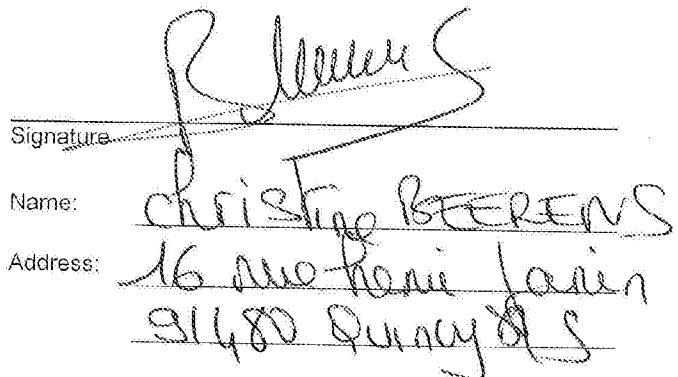 Signature
Name: Christine BEERENS
Address: 16 rue Henri Janin
91480 Quincy S/S